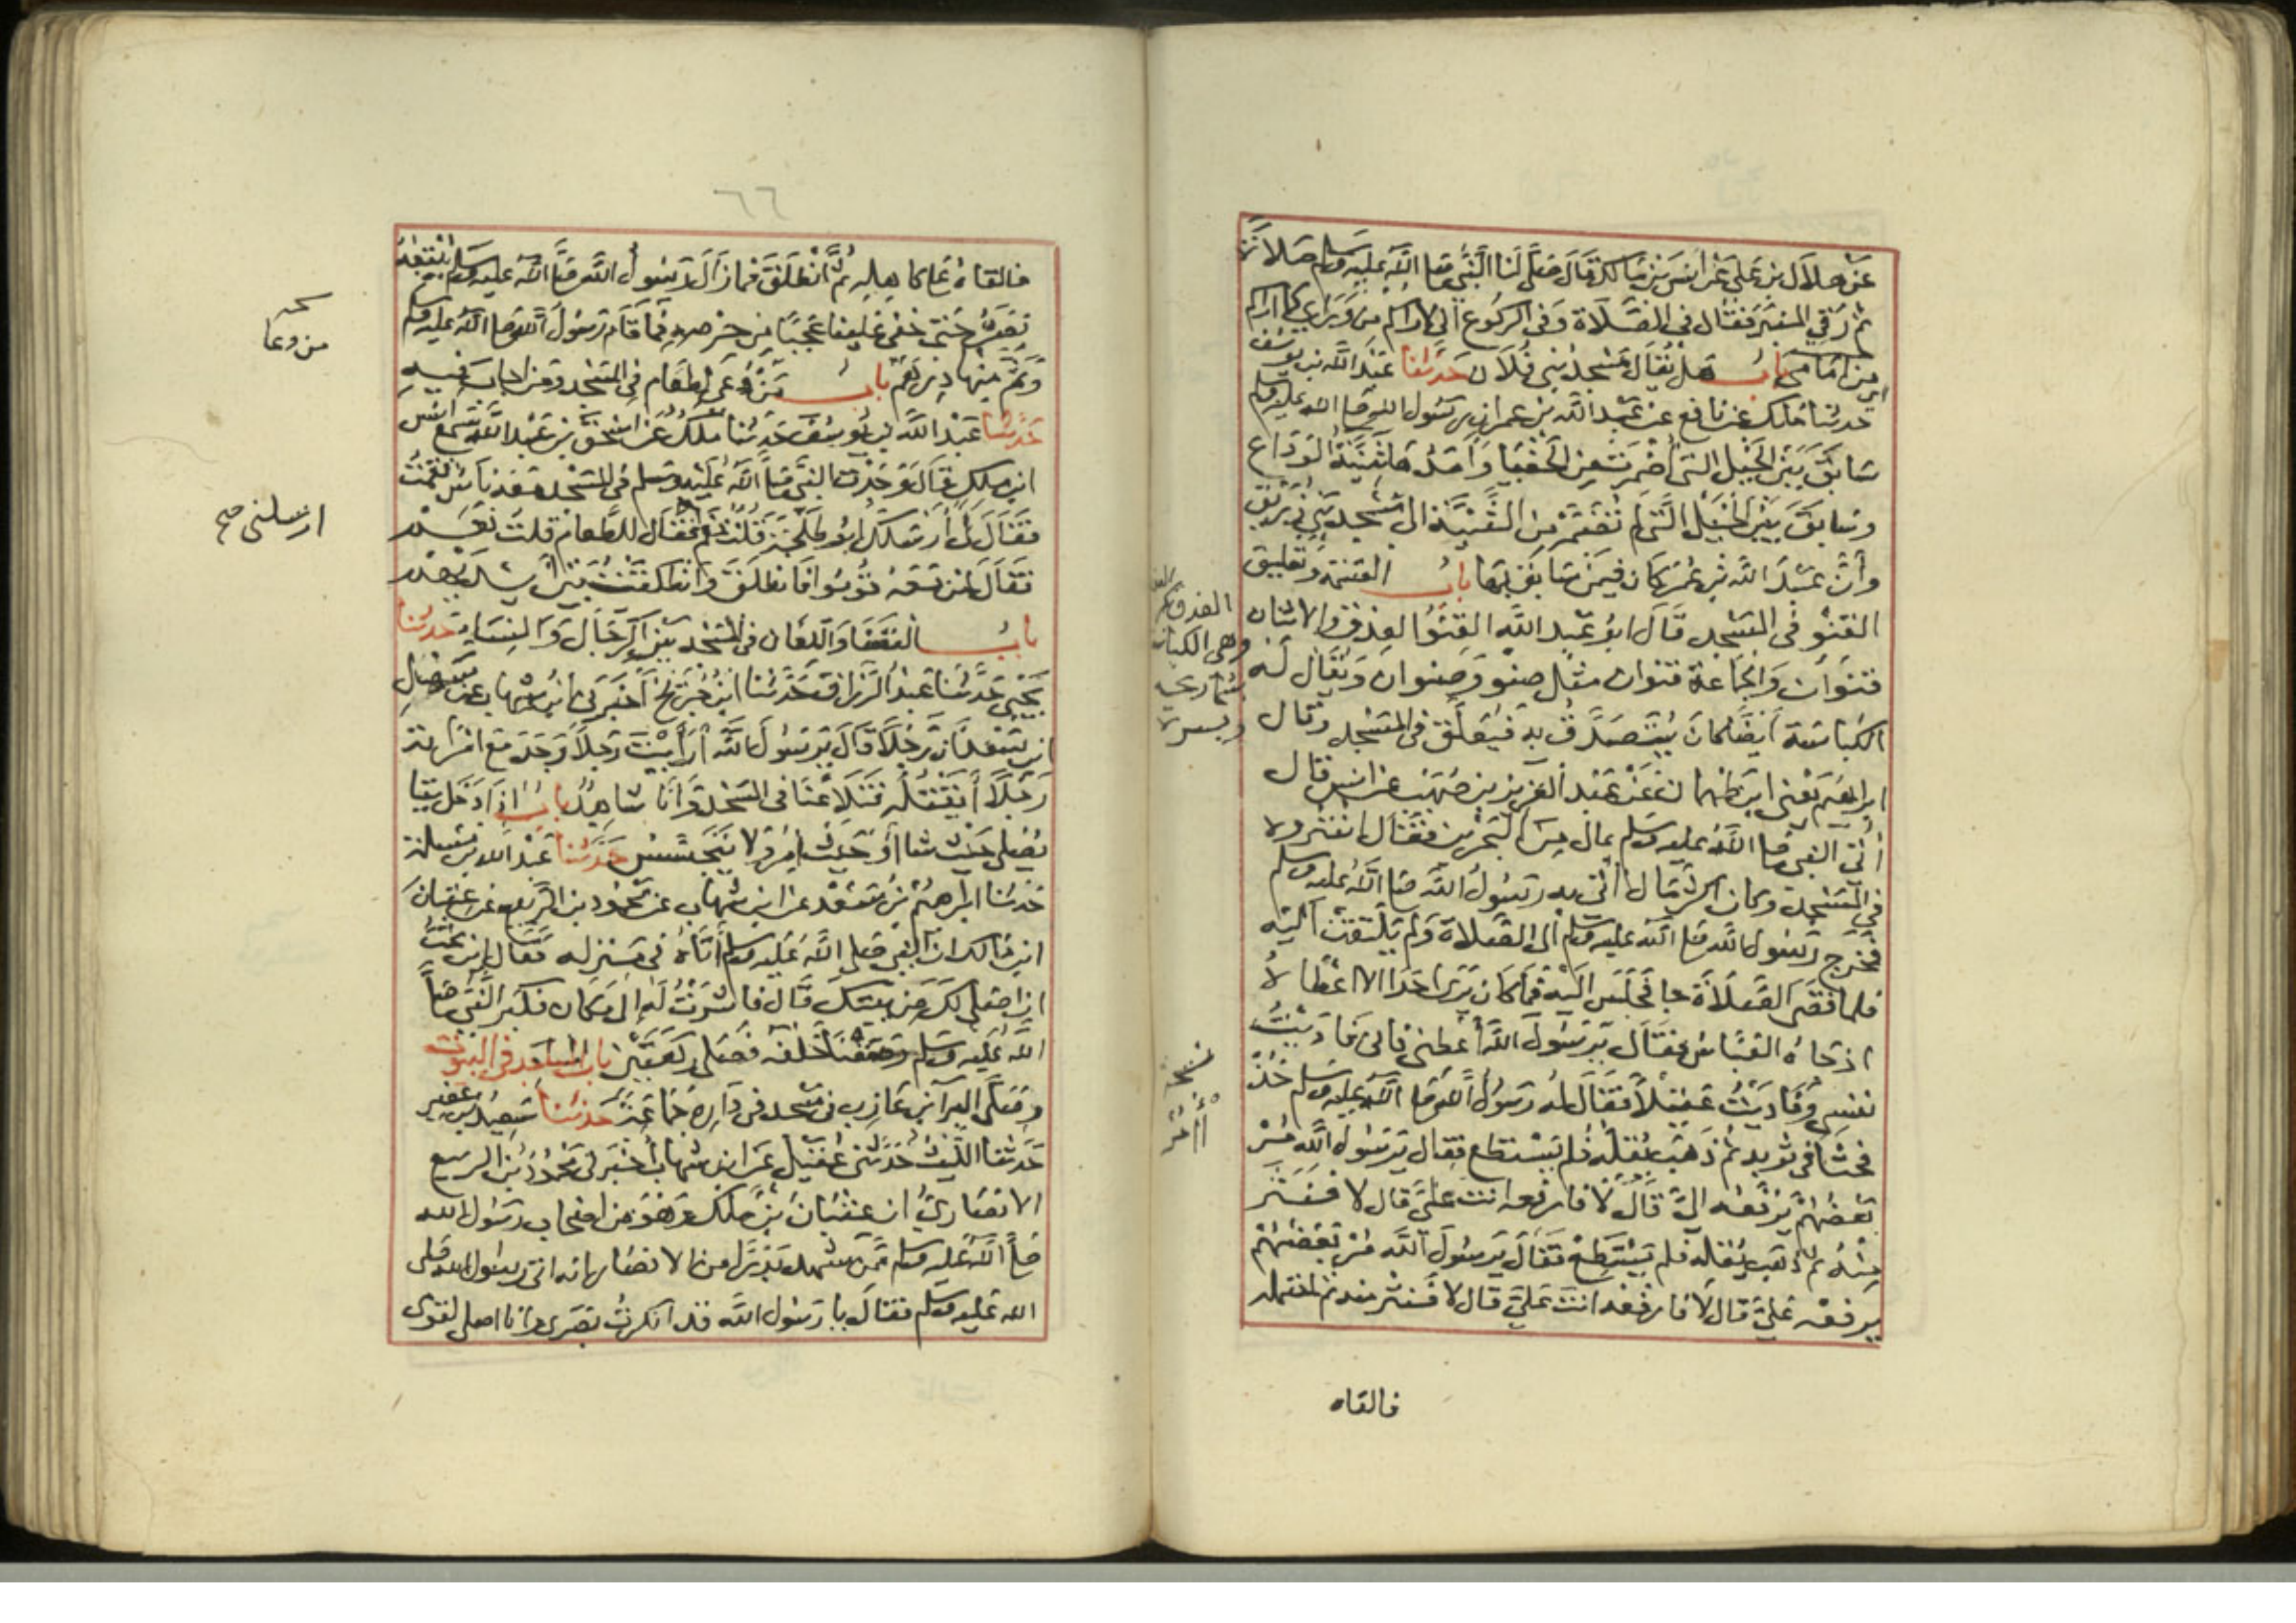 عن هلال بن علي عن انس بن مالك قال صلى لنا النبي صلى الله عليه وسلم صلاة
ثم رقي المنبر فقال في الصلاة وفي الركوع اني لاراكم من وراي كما اراكم
من امامي باب هل يقال مسجد بني فلان حدثنا عبد الله بن يوسف
حدثنا ملك عن نافع عن عبد الله بن عمر ان رسول الله صلى الله عليه وسلم
سابق بين الخيل التي اضمرت من الحفيا وامدها ثنية الوداع
وسابق بين الخيل التي لم تضمر من الثنية الى مسجد بني زريق
وأن عبد الله بن عمر كان فيمن سابق بها باب القسمة وتعليق
القنو في المسجد قال ابو عبد الله القنو العذق والاثنان
قنوان والجماعة قنوان مثل صنو وصنوان ويقال له
الكباسة ايضا كان يتصدق به فيعلق في المسجد وقال
ابراهيم يعني ابن طهمان عن عبد العزيز بن صهيب عن انس قال
أتي النبي صلى الله عليه وسلم بمال من البحرين فقال انثروه
في المسجد وكان اكثر مال أتي به رسول الله صلى الله عليه وسلم
فخرج رسول الله صلى الله عليه وسلم الى الصلاة ولم يلتفت اليه
فلما قضى الصلاة جا فجلس اليه فما كان يرى احدا الا اعطاه
اذ جاه العباس فقال يرسول الله أعطني فاني فاديت
نفسي وفاديت عقيلا فقال له رسول الله صلى الله عليه وسلم خذ
فحثا في ثوبه ثم ذهب يقله فلم يستطع فقال يرسول الله مر
بعضهم يرفعه الي قال لا فارفعه انت علي قال لا فنثر
منه ثم ذهب يقله فلم يستطع فقال يرسول الله مر بعضهم
يرفعه علي قال لا فارفعه انت علي قال لا فنثر منه ثم احتمله
فالقاه
وهي الكباسة
نسخة
أأمر
٦٦
فالقاه على كاهله ثم انطلق فما زال رسول الله صلى الله عليه وسلم يتبعه
بصره حتى خفي علينا عجبا من حرصه فما قام رسول الله صلى الله عليه وسلم
وثم منها درهم باب من دعي لطعام في المسجد ومن اجاب فيه
حدثنا عبد الله بن يوسف حدثنا ملك عن اسحق بن عبد الله سمع انس
ابن ملك قال وجدت النبي صلى الله عليه وسلم في المسجد معه ناس فقمت
فقال لي أارسلك ابو طلحة قلت نعم فقال للطعام قلت نعم
فقال لمن معه قوموا فانطلق وانطلقت بين ايديهم
باب القضا واللعان في المسجد بين الرجال والنساء حدثنا
يحيى حدثنا عبد الرزاق حدثنا ابن جريج أخبرني ابن شهاب عن سهل
ابن سعد ان رجلا قال يرسول الله أرأيت رجلا وجد مع امراته
رجلا أيقتله فتلاعنا في المسجد وانا شاهد باب اذا دخل بيتا
يصلي حيث شا أو حيث امر ولا يتجسس حدثنا عبد الله بن مسلمة
حدثنا ابرهيم بن سعد عن ابن شهاب عن محمود بن الربيع عن عتبان
ابن مالك ان النبي صلى الله عليه وسلم أتاه في منزله فقال اين تحب
ان اصلي لك من بيتك قال فاشرت له الى مكان فكبر النبي صلى
الله عليه وسلم وصففنا خلفه فصلى ركعتين باب المساجد في البيوت
وصلى البرآ بن عازب في مسجد في داره جماعة حدثنا سعيد بن عفير
حدثنا الليث حدثني عقيل عن ابن شهاب أخبرني محمود بن الربيع
الانصاري ان عتبان بن ملك وهو من اصحاب رسول الله
صلى الله عليه وسلم ممن شهد بدرا من الانصار انه اتى رسول الله صلى
الله عليه وسلم فقال يا رسول الله قد انكرت بصري وانا اصلي لقومي
من دعا
ارسلني صح